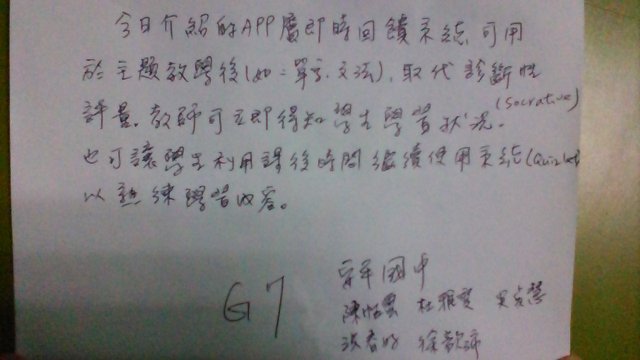 今日介紹的APP屬即時回饋系統,可用
於主題教學後(如:單字.文法),取代診斷性
評量,教師可立即得知學生學習狀況。(Socrative)
也可讓學生利用課後時間繼續使用系統(Quizlet)
以熟練學習內容。
G7
國中
陳怡 杜雅
徐